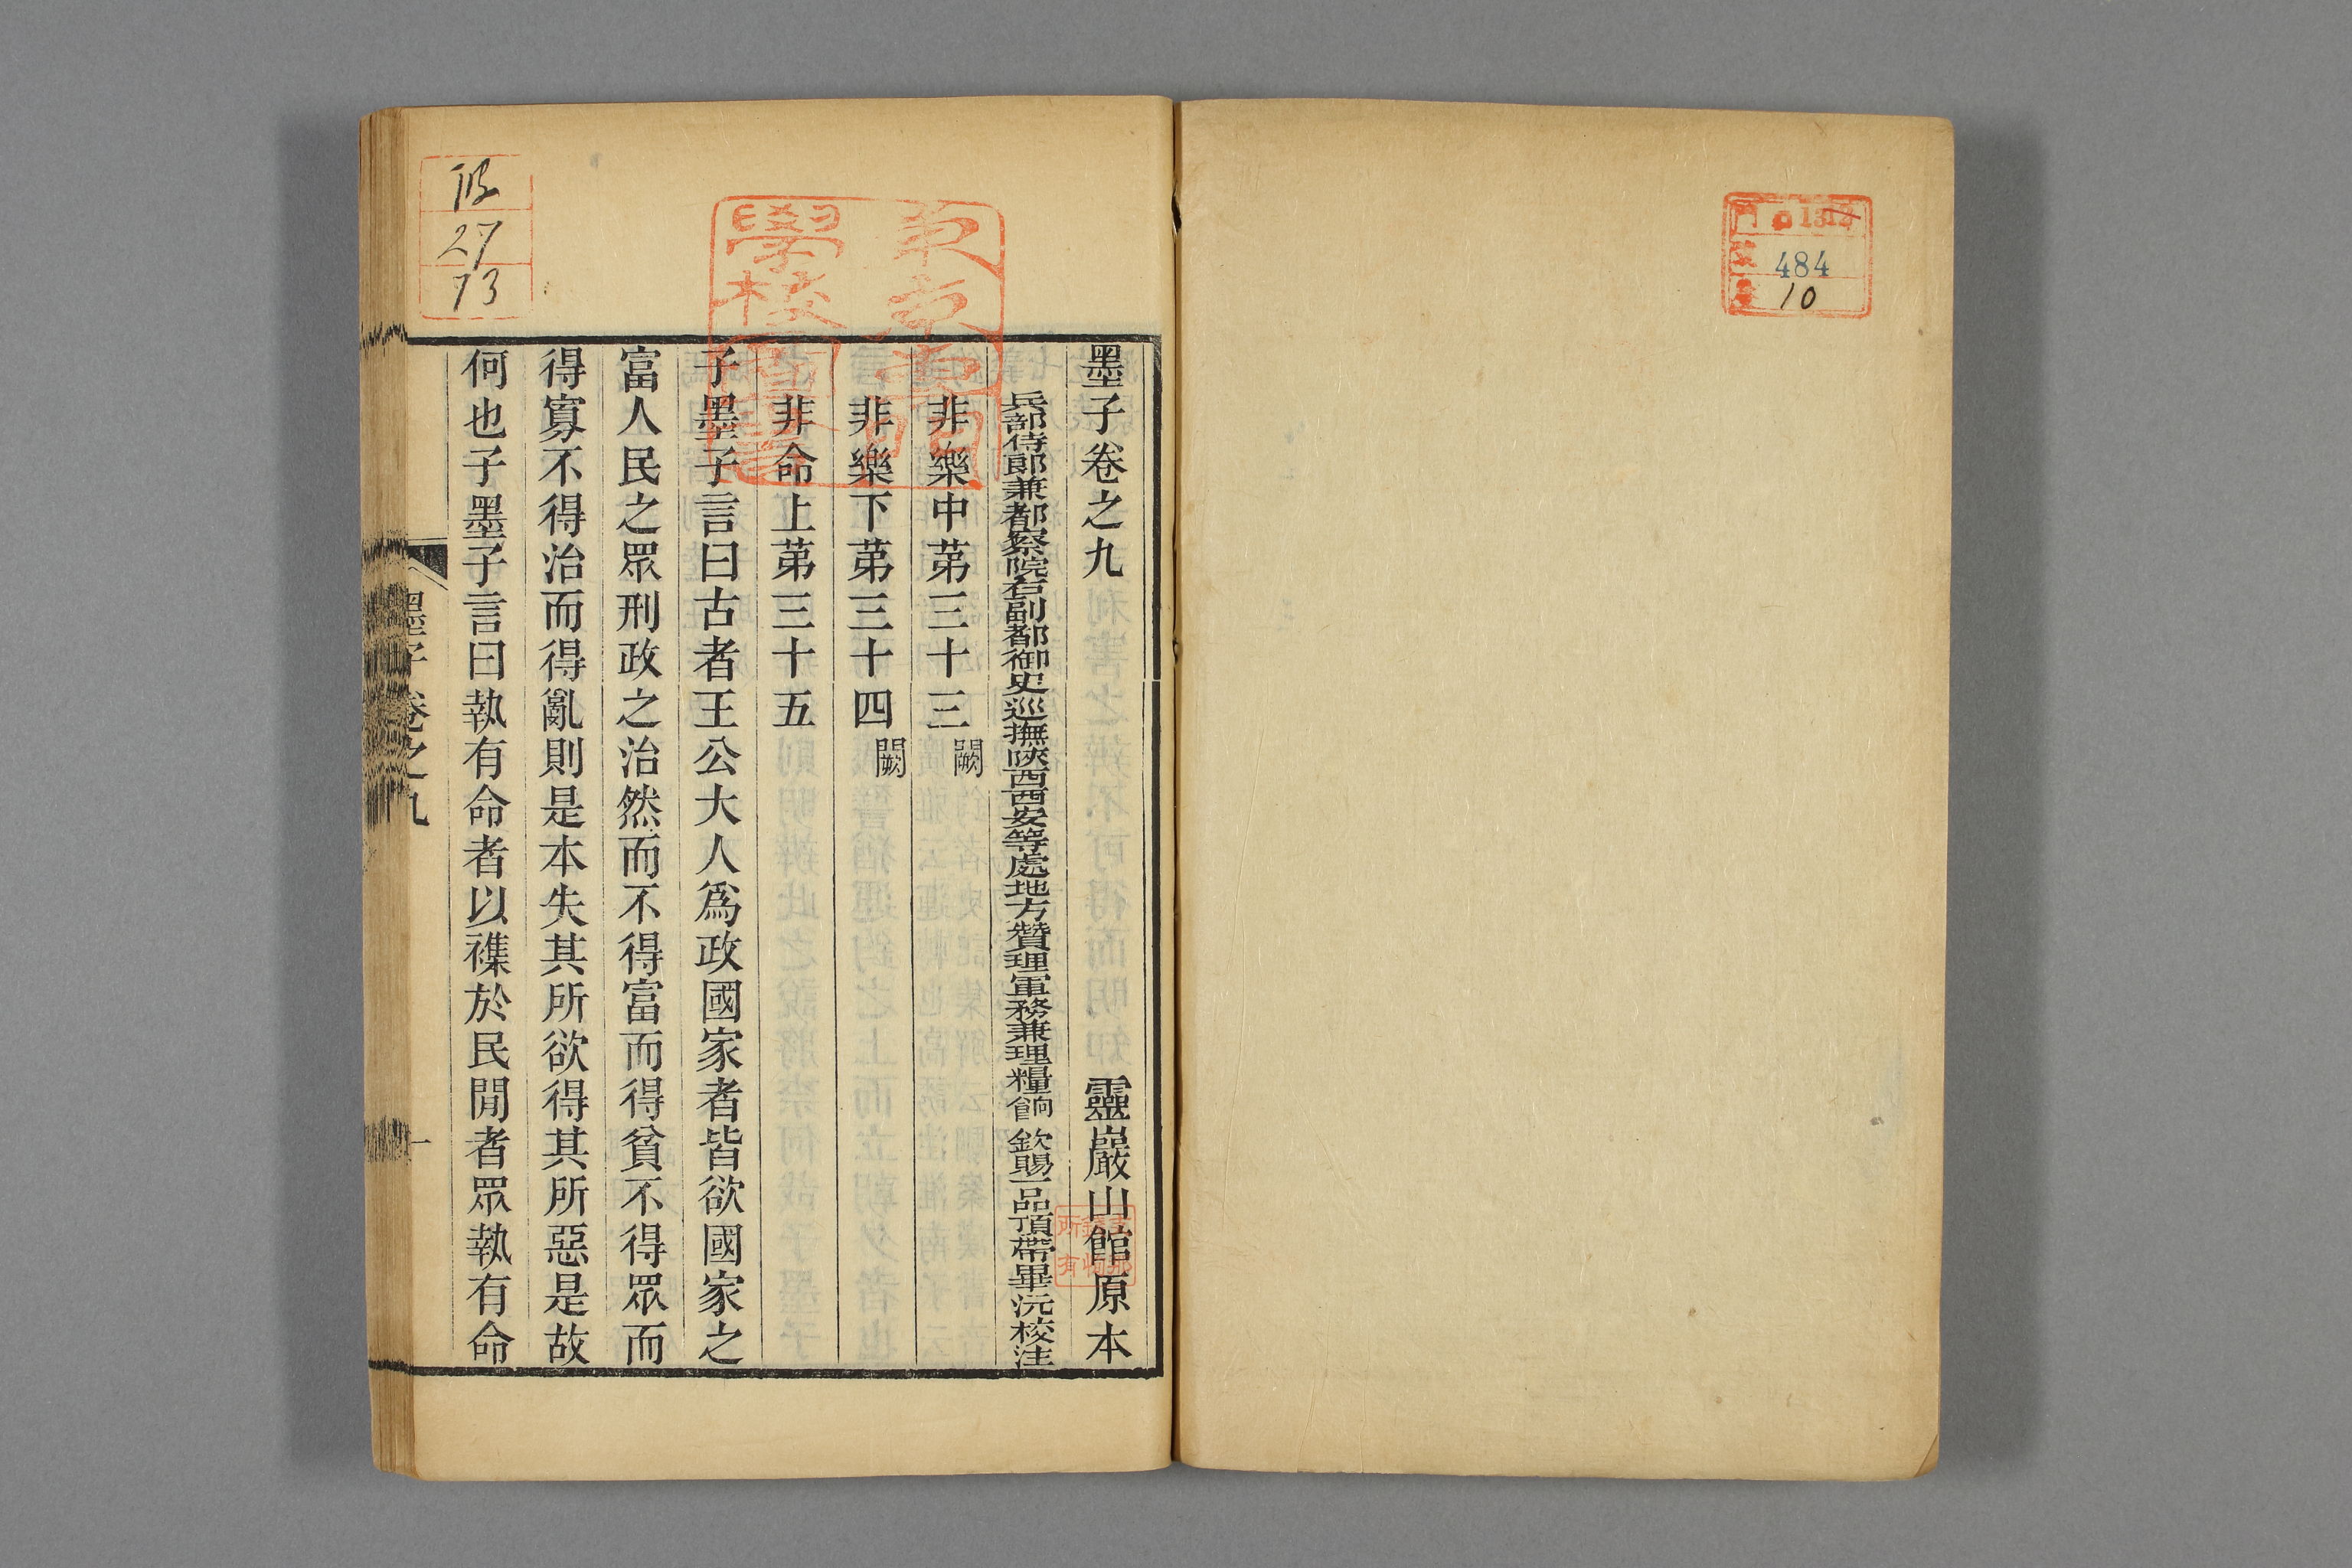 墨子卷之九　靈巖山館原本
兵部侍郎兼都察院右副都御史巡撫陝西西安等處地方贊理軍務兼理糧餉　欽賜一品頂帶畢沅校注
非樂中苐三十三　闕
非樂下苐三十四　闕
非命上苐三十五
子墨子言曰古者王公大人爲政國家者皆欲國家之
富人民之眾刑政之治然而不得富而得貧不得眾而
得寡不得治而得亂則是本失其所欲得其所惡是故
何也子墨子言曰執有命者以襍於民閒者眾執有命
墨子　卷之九
一
27
73
484
10
東京專門
學校圖書